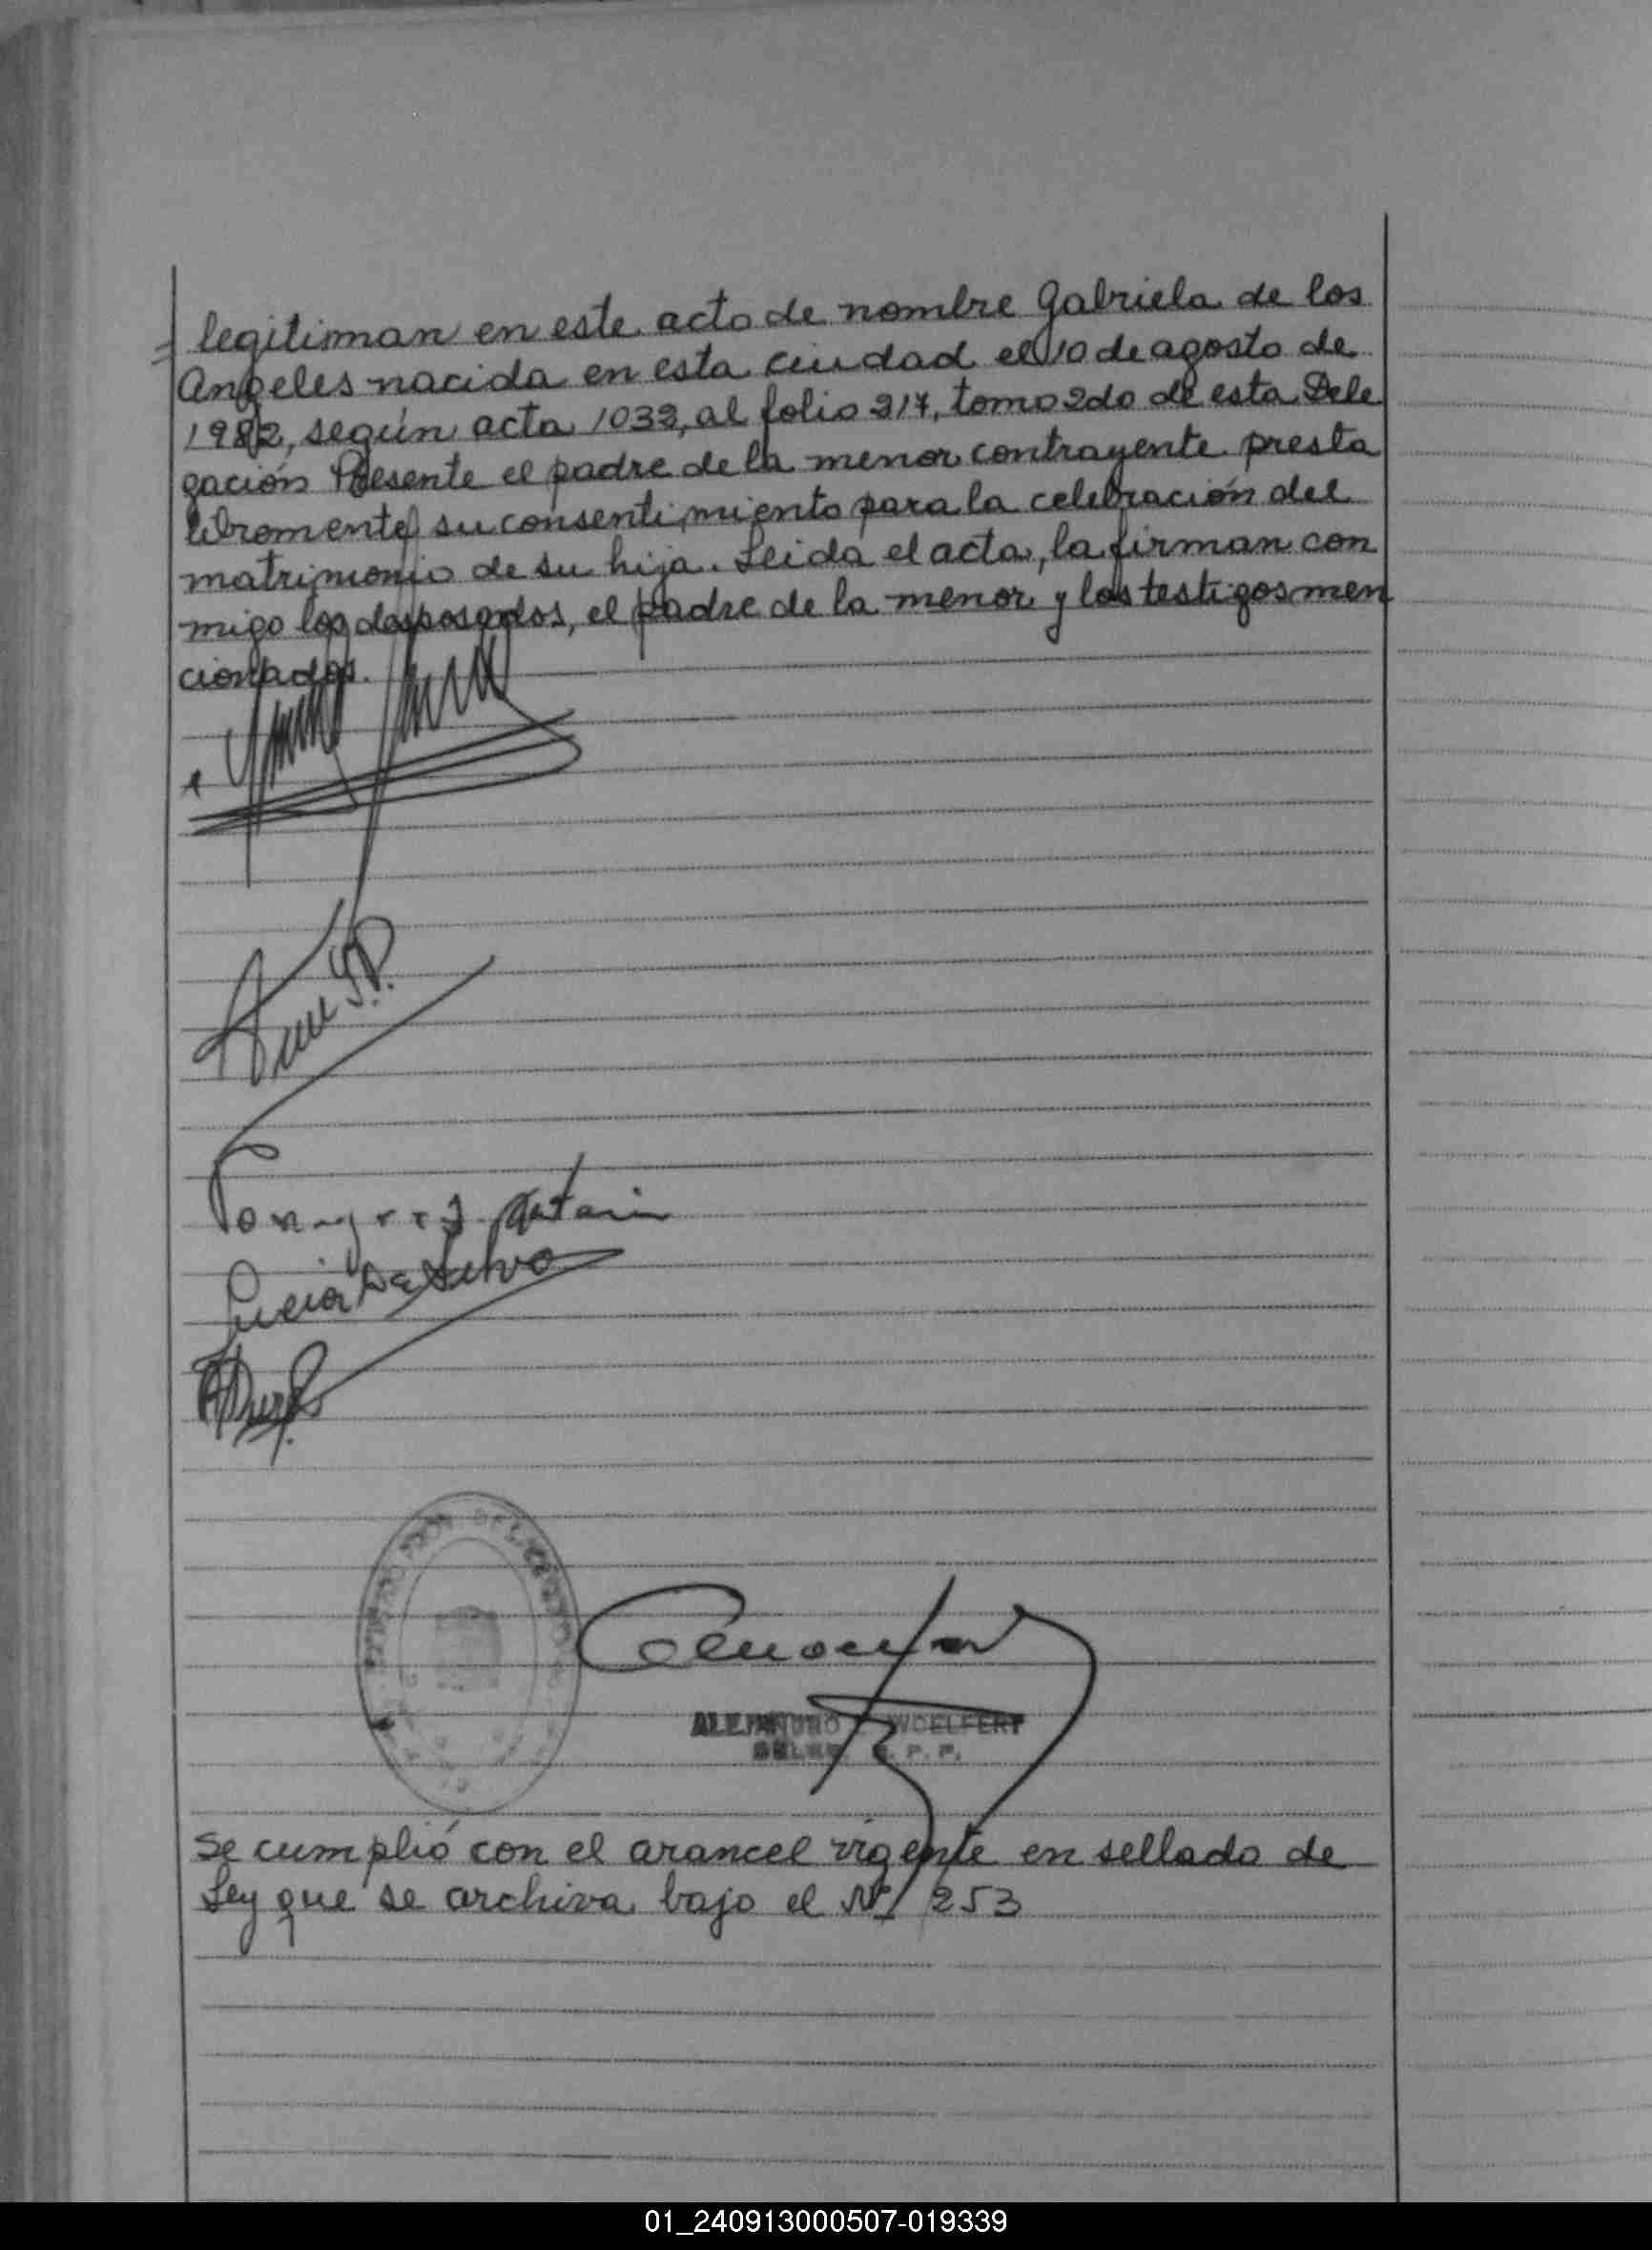 = legitiman en este acto de nombre Gabriela de los
Angeles nacida en esta ciudad el 10 de agosto de
1982, según acta 1032, al folio 217, tomo 2do de esta Dele
gación Presente el padre de la menor contrayente presta
libremente su consentimiento para la celebración del
matrimonio de su hija. Leida el acta, la firman con
migo los desposados, el padre de la menor y los testigos men
cionados.
Lucia De Silvo
ALEJANDRO WOELFERT
Se cumplió con el arancel vigente en sellado de
Ley que se archiva bajo el Nº 253
01_240913000507-019339